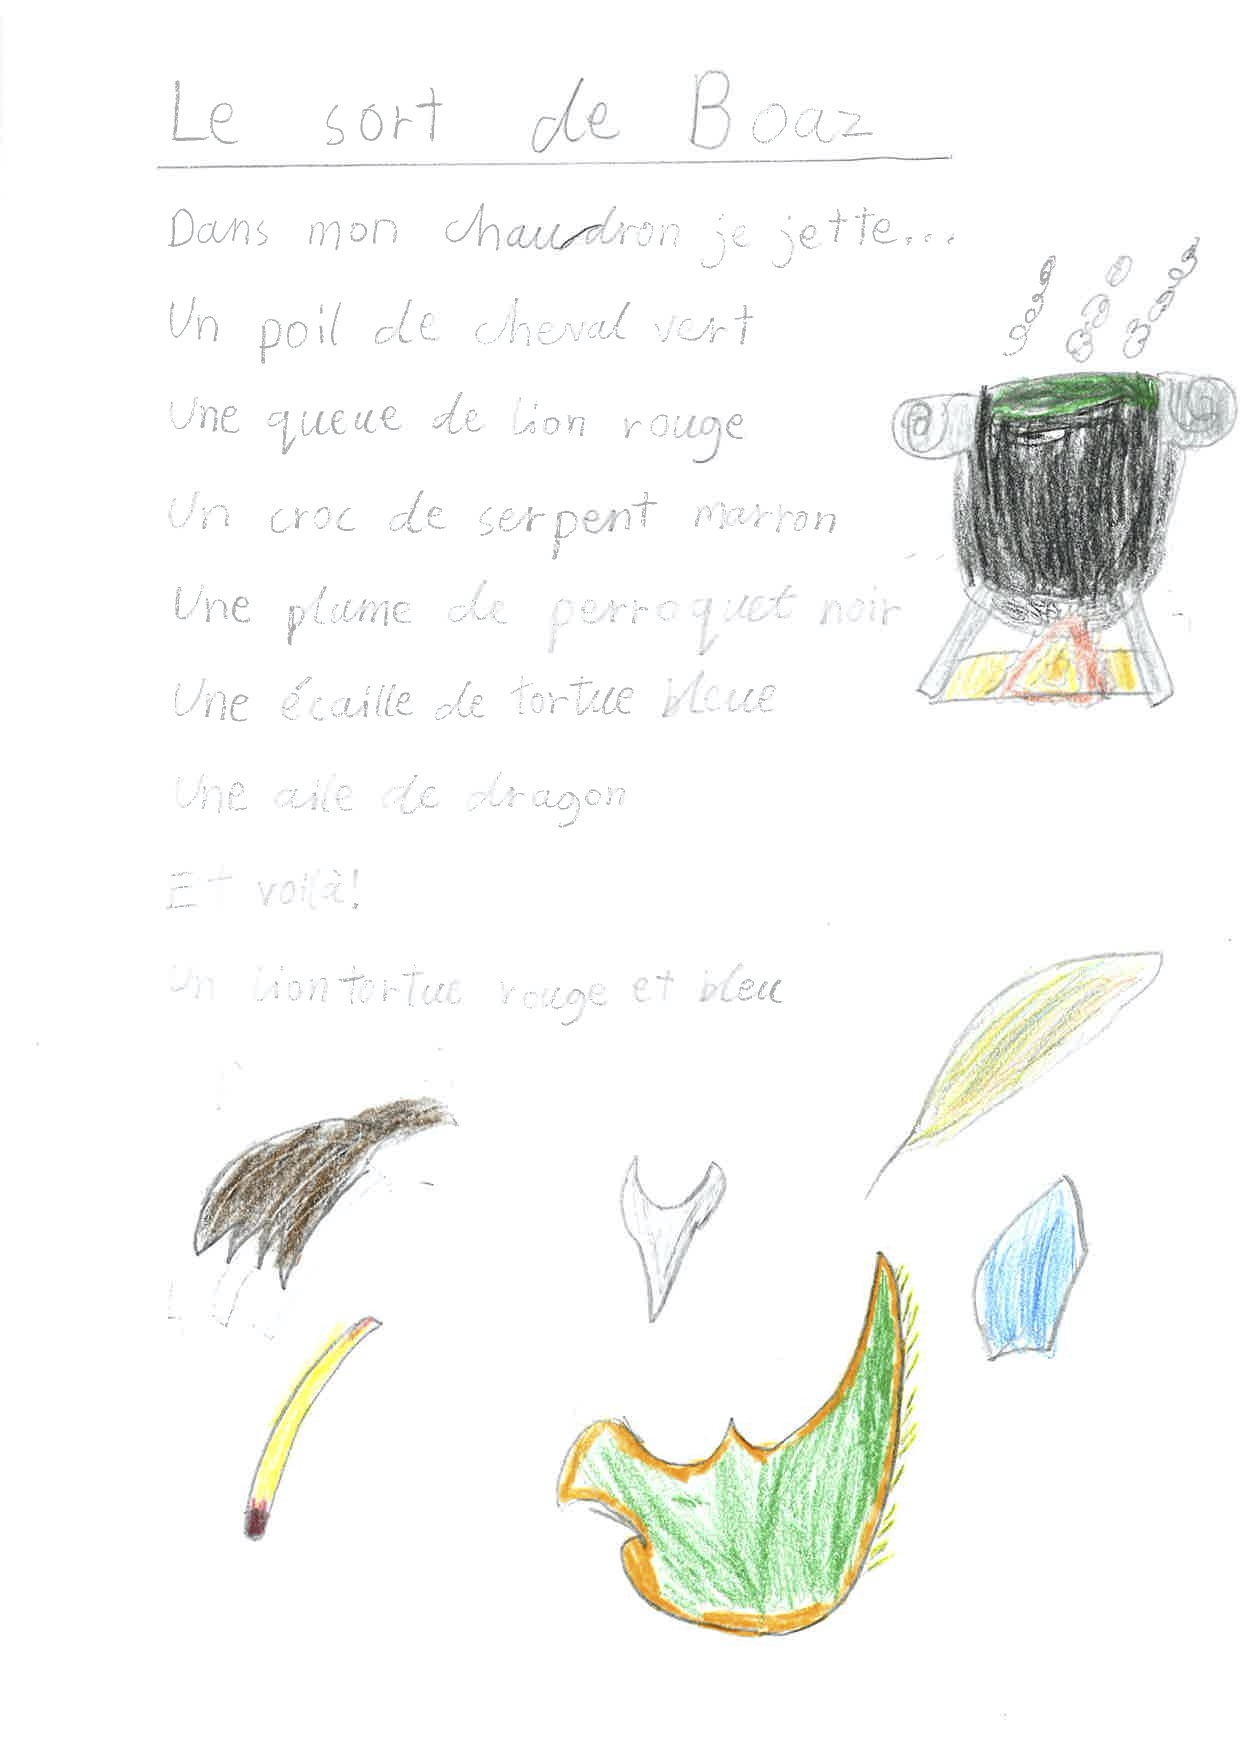 Le sort de Boaz
Dans mon chaudron je jette...
Un poil de cheval vert
Une queue de lion rouge
Un croc de serpent marron
Une plume de perroquet noir
Une écaille de tortue bleue
Une aile de dragon
Et voilà!
Un liontortue rouge et bleu